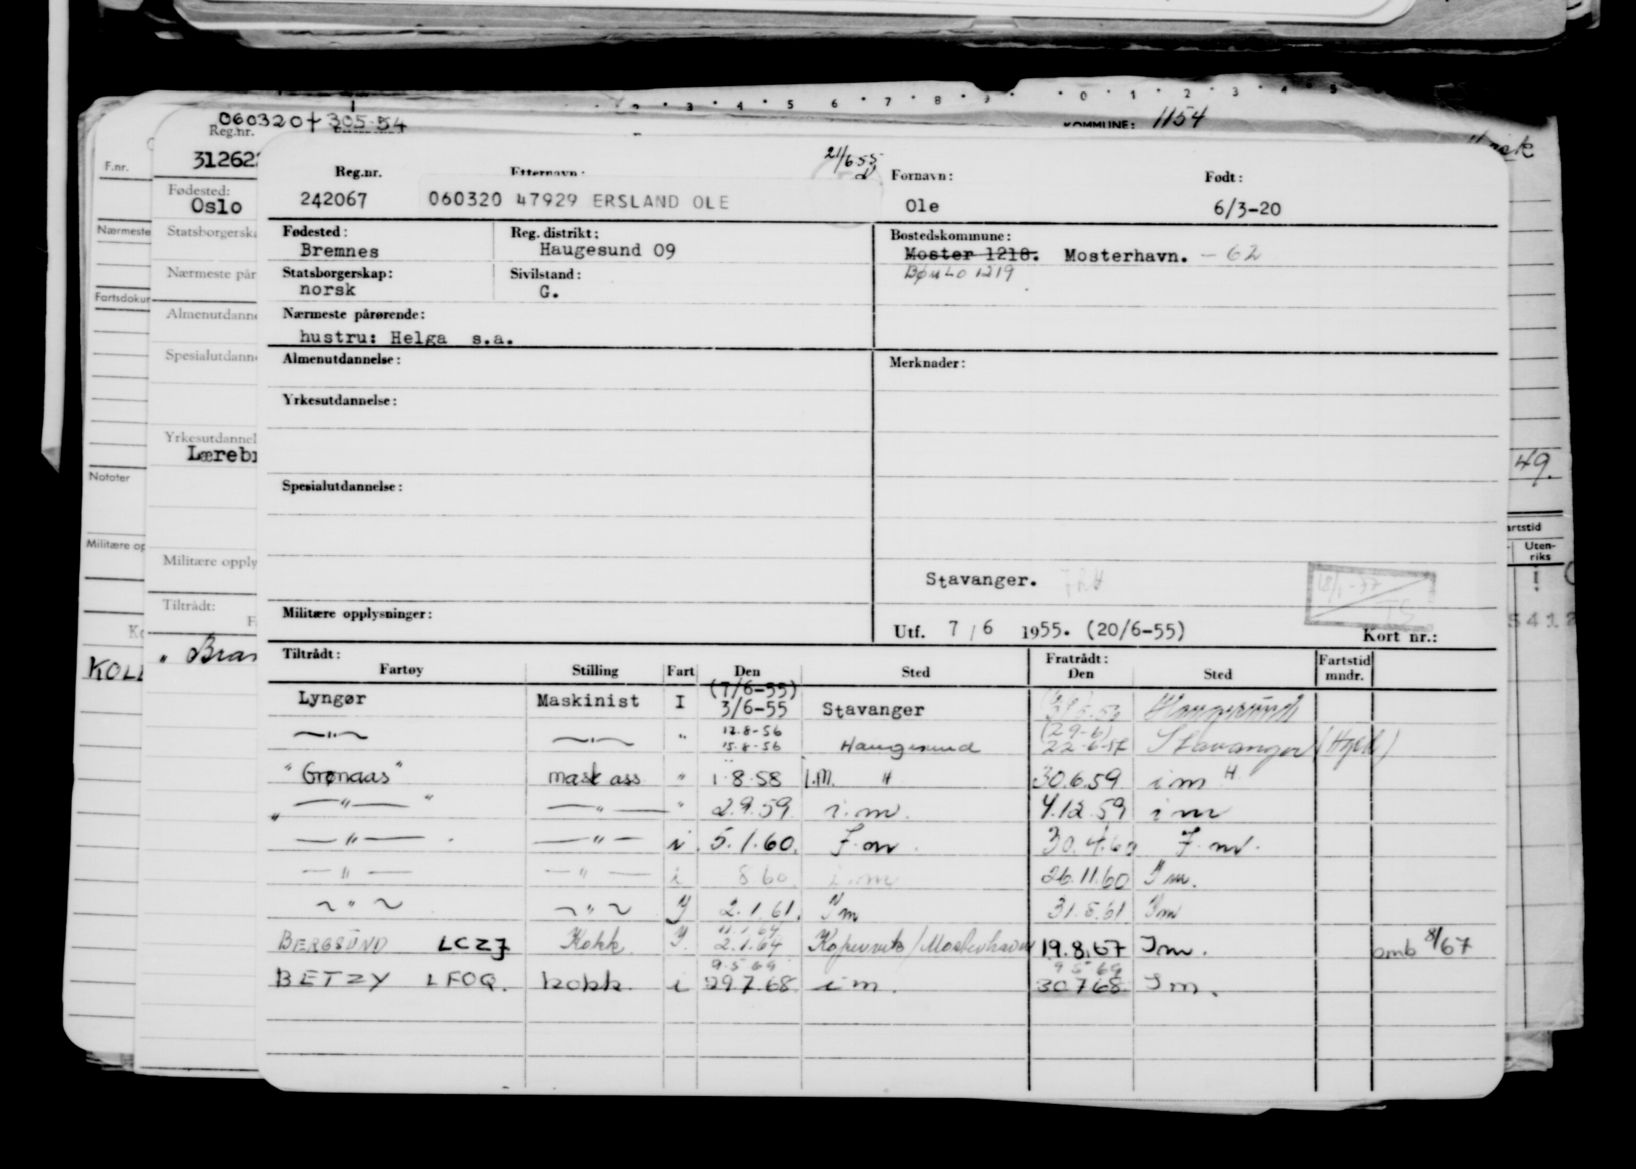 2 3 4 5 6 7 8 9 0 1 2 3 4 5
060320 + 305-54
KOMMUNE: 1154
Reg.nr.
31262
F.nr.
Fødested:
Oslo
Nærmeste
Statsborgerska
Nærmeste pår
Fartsdokum
Almenutdanne
Spesialutdann
Yrkesutdannel
Læreb
Notater
Militære op
Militære opply
Tiltrådt:
KOLL
" Bran
49.
artstid
Uten-
riks
5 4 1 2
21/6 55
Reg.nr. Etternavn: Fornavn: Født:
242067 060320 47929 ERSLAND OLE Ole 6/3-20
Fødested: Reg. distrikt: Bostedskommune:
Bremnes Haugesund 09 Moster 1218. Mosterhavn. - 62
Statsborgerskap: Sivilstand: BØMLO 1219
norsk G.
Nærmeste pårørende:
hustru: Helga s.a.
Almenutdannelse: Merknader:
Yrkesutdannelse:
Spesialutdannelse:
Stavanger.
Militære opplysninger:
Utf. 7/6 1955. (20/6-55) Kort nr.:
Tiltrådt: Fratrådt: Fartstid
Fartøy Stilling Fart Den Sted Den Sted mndr.
(7/6-55)
Lyngør Maskinist I 3/6-55 Stavanger Haugesund
12.8-56 (29-6)
—"— —"— " 15.8-56 Haugesund 22-6-57 Stavanger (Hgsd)
"Grønaas" mask ass " 1.8.58 I.M. " 30.6.59 i m H
"—"—" —"— " 2.9.59 i.m. 4.12.59 i m
—"— —"— i 5.1.60. I.m. 30.4.60 I.m.
—"— —"— i 8 60 i.m 26.11.60 I m.
—"— —"— I 2.1.61. I m 31.8.61 I m
11.1.64
BERGSUND LCZJ Kokk I. 2.1.64 Kopervik/Mosterhavn 19.8.67 I m. omb 8/67
9.5 69 9 5 69
BETZY LFOQ. kokk i 29.7.68 i m. 30768 I m.